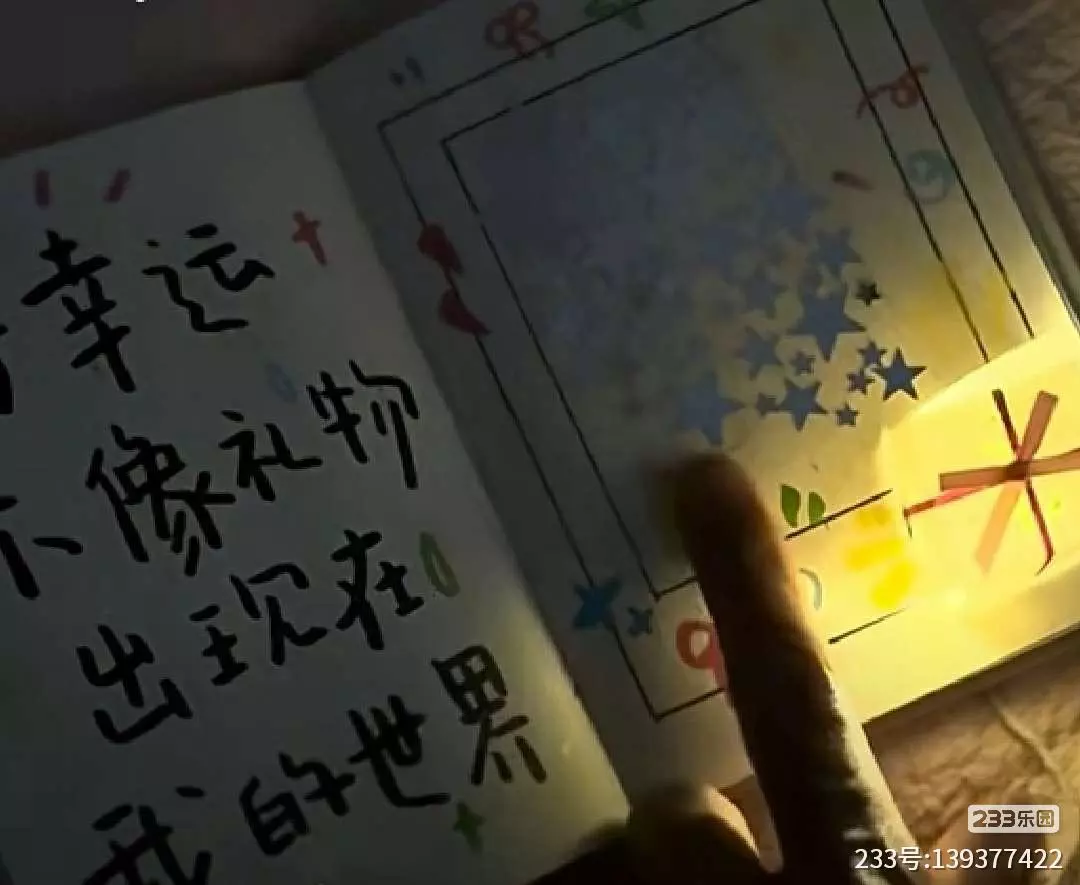 幸运
像礼物
出现在
我的世界
233乐园
233号:139377422